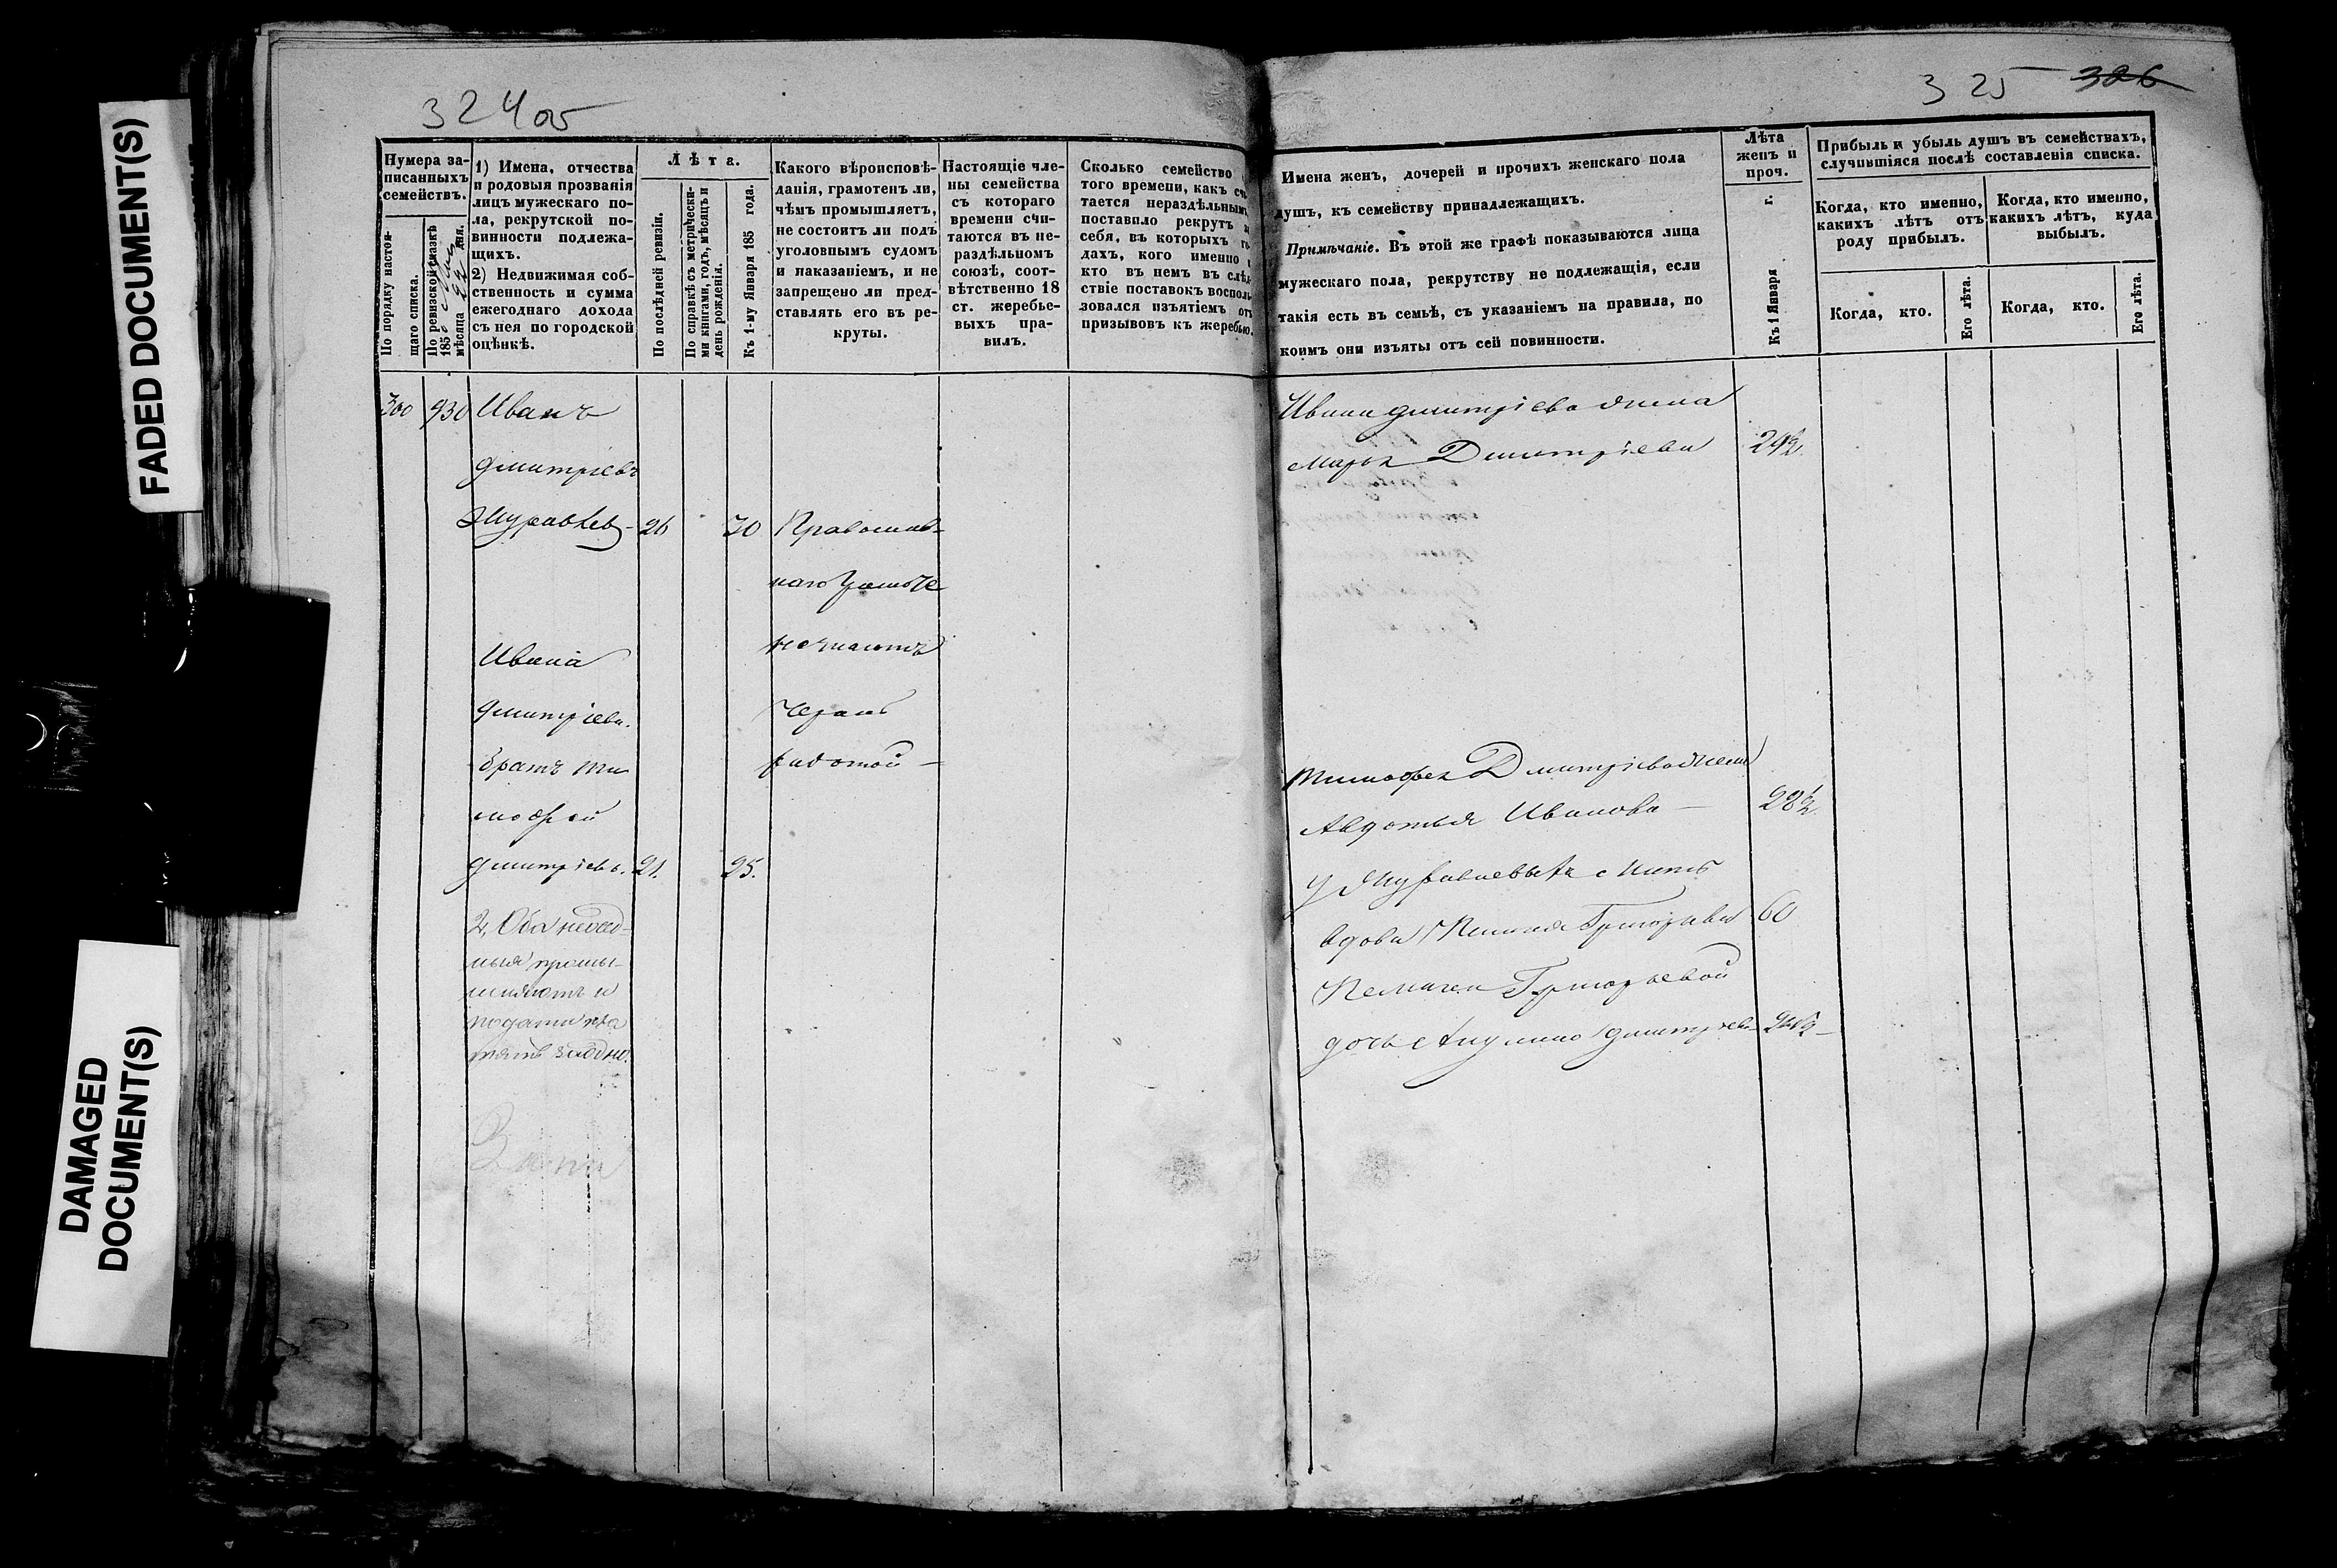 FADED DOCUMENT(S)
DAMAGED
DOCUMENT(S)
324 об
Нумера за-
писанныхъ
семействъ.
По порядку настоя-
щаго списка.
По ревизской сказкѣ
185
мѣсяца 22 дня.
1) Имена, отчества
и родовыя прозванія
лицъ мужескаго по-
ла, рекрутской по-
винности подлежа-
щихъ.
2) Недвижимая соб-
ственность и сумма
ежегоднаго дохода
съ нея по городской
оцѣнкѣ.
Лѣта.
По послѣдней ревизіи.
По справкѣ съ метрически-
ми книгами, годъ, мѣсяцъ и
день рожденія.
Къ 1-му Января 185 года.
Какого вѣроисповѣ-
данія, грамотенъ ли,
чѣмъ промышляетъ,
не состоитъ ли подъ
уголовнымъ судомъ
и наказаніемъ, и не
запрещено ли пред-
ставлять его въ ре-
круты.
Настоящіе чле-
ны семейства
съ котораго
времени счи-
таются въ не-
раздѣльномъ
союзѣ, соот-
вѣтственно 18
ст. жеребье-
выхъ пра-
вилъ.
Сколько семейство
того времени, какъ сч
тается нераздѣльнымъ,
поставило рекрутъ з
себя, въ которыхъ го
дахъ, кого именно и
кто въ немъ въ слѣд
ствіе поставокъ восполь
зовался изъятіемъ отъ
призывовъ къ жеребью.
300 930 Иванъ
Дмитріевъ
Журавлев- 26 30 Православ-
наго Грамоте
не знаютъ
Ивана
Дмитріева. Черно
братъ Ти работой -
мофей
Дмитріевъ. 21. 25.
2, Оба нераз-
промы-
шляютъ и
подати пла
тятъ заодно.
325 326
Имена женъ, дочерей и прочихъ женскаго пола
душъ, къ семейству принадлежащихъ.
Примѣчаніе. Въ этой же графѣ показываются лица
мужескаго пола, рекрутству не подлежащія, если
такія есть въ семьѣ, съ указаніемъ на правила, по
коимъ они изъяты отъ сей повинности.
Лѣта
женъ и
проч.
Къ 1 Января г.
Прибыль и убыль душъ въ семействахъ,
случившіяся послѣ составленія списка.
Когда, кто именно,
какихъ лѣтъ отъ
роду прибылъ.
Когда, кто именно,
какихъ лѣтъ, куда
выбылъ.
Когда, кто.
Его лѣта.
Когда, кто.
Его лѣта.
Ивана Дмитріева жена
Марья Дмитріева 29½
Тимофея Дмитріева жена
Авдотья Иванова 28½
У Журавлевыхъ мать
вдова Пелагея Григорьева 60
Пелагеи Григорьевой
дочь Акулина Дмитріева